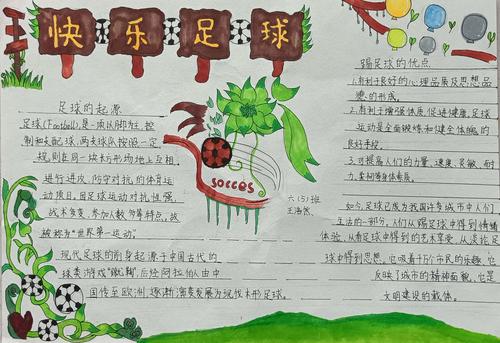 快乐足球
足球的起源
足球(Football),是一项以脚为主,控
制和支配球,两支球队按照一定
规则在同一块长方形场地上互相
进行进攻、防守对抗的体育运
动项目。因足球运动对抗性强、
战术多变、参加人数多等特点,故
被称为“世界第一运动”。
现代足球的前身起源于中国古代的
球类游戏“蹴鞠”后经阿拉伯人由中
国传至欧洲,逐渐演变发展为现代足球。
socces
六(5)班
踢足球的优点
1.有利于良好的心理品质及思想品
德的形成。
2.有利于增强体质,促进健康,足球
运动是全面锻炼和健全体魄的
良好手段。
3.可提高人们的力量、速度、灵敏、耐
力、柔韧等身体素质。
如今,足球已成为我国许多城市中人们
生活的一部分,人们从踢足球中得到情绪
体验,从看足球中得到的艺术享受,从谈论足
球中得到思想。它吸着千万个市民的乐趣,它
反映了城市的精神面貌,它是
文明建设的载体。